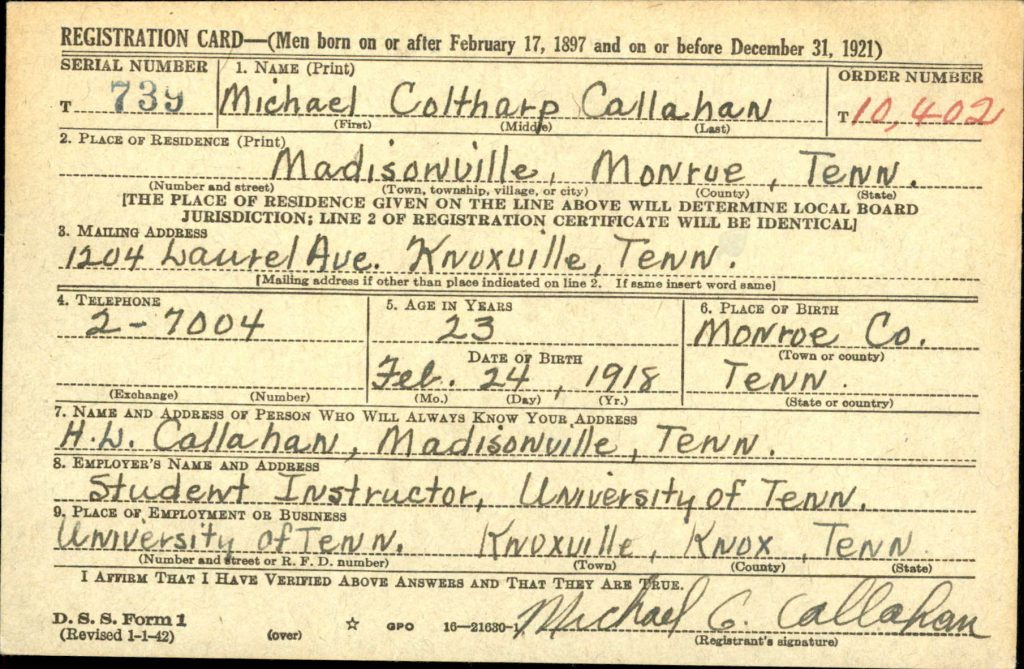 REGISTRATION CARD—(Men born on or after February 17, 1897 and on or before December 31, 1921)
SERIAL NUMBER
1. NAME (Print)
ORDER NUMBER
T 739
Michael Coltharp Callahan
T 10,402
(First) (Middle) (Last)
2. PLACE OF RESIDENCE (Print)
Madisonville, Monroe, Tenn.
(Number and street) (Town, township, village, or city) (County) (State)
[THE PLACE OF RESIDENCE GIVEN ON THE LINE ABOVE WILL DETERMINE LOCAL BOARD
JURISDICTION; LINE 2 OF REGISTRATION CERTIFICATE WILL BE IDENTICAL]
3. MAILING ADDRESS
1204 Laurel Ave. Knoxville, Tenn.
[Mailing address if other than place indicated on line 2. If same insert word same]
4. TELEPHONE
2-7004
(Exchange) (Number)
5. AGE IN YEARS
23
DATE OF BIRTH
Feb. 24, 1918
(Mo.) (Day) (Yr.)
6. PLACE OF BIRTH
Monroe Co.
(Town or county)
Tenn.
(State or country)
7. NAME AND ADDRESS OF PERSON WHO WILL ALWAYS KNOW YOUR ADDRESS
H.L. Callahan, Madisonville, Tenn.
8. EMPLOYER'S NAME AND ADDRESS
Student Instructor, University of Tenn.
9. PLACE OF EMPLOYMENT OR BUSINESS
University of Tenn. Knoxville, Knox, Tenn
(Number and street or R. F. D. number) (Town) (County) (State)
I AFFIRM THAT I HAVE VERIFIED ABOVE ANSWERS AND THAT THEY ARE TRUE.
D. S. S. Form 1
(Revised 1-1-42) (over) ☆ GPO 16—21630-1
Michael C. Callahan
(Registrant's signature)